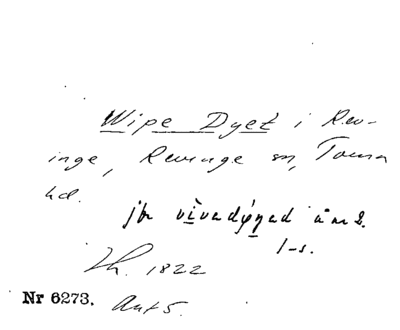 Wipe Dyet i Rev-
inge, Revinge sn, Torna
hd.
jfr vìvadýŋad åm2.
1-s.
Lh. 1822
Nr 6273. Ant 5.